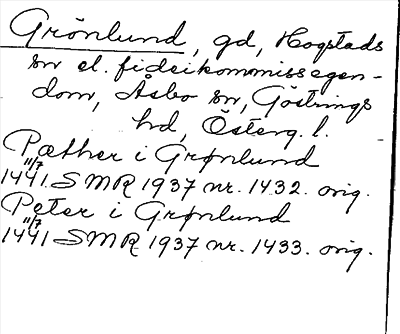 Grönlund, gd, Hogstads
sn el. fideikommissegen-
dom, Åsbo sn, Göstrings
hd, Österg. l.
Pæther i Grønlund
11/7
1441 SMR 1937 nr. 1432. orig.
Peter i Grønlund
11/7
1441 SMR 1937 nr. 1433. orig.